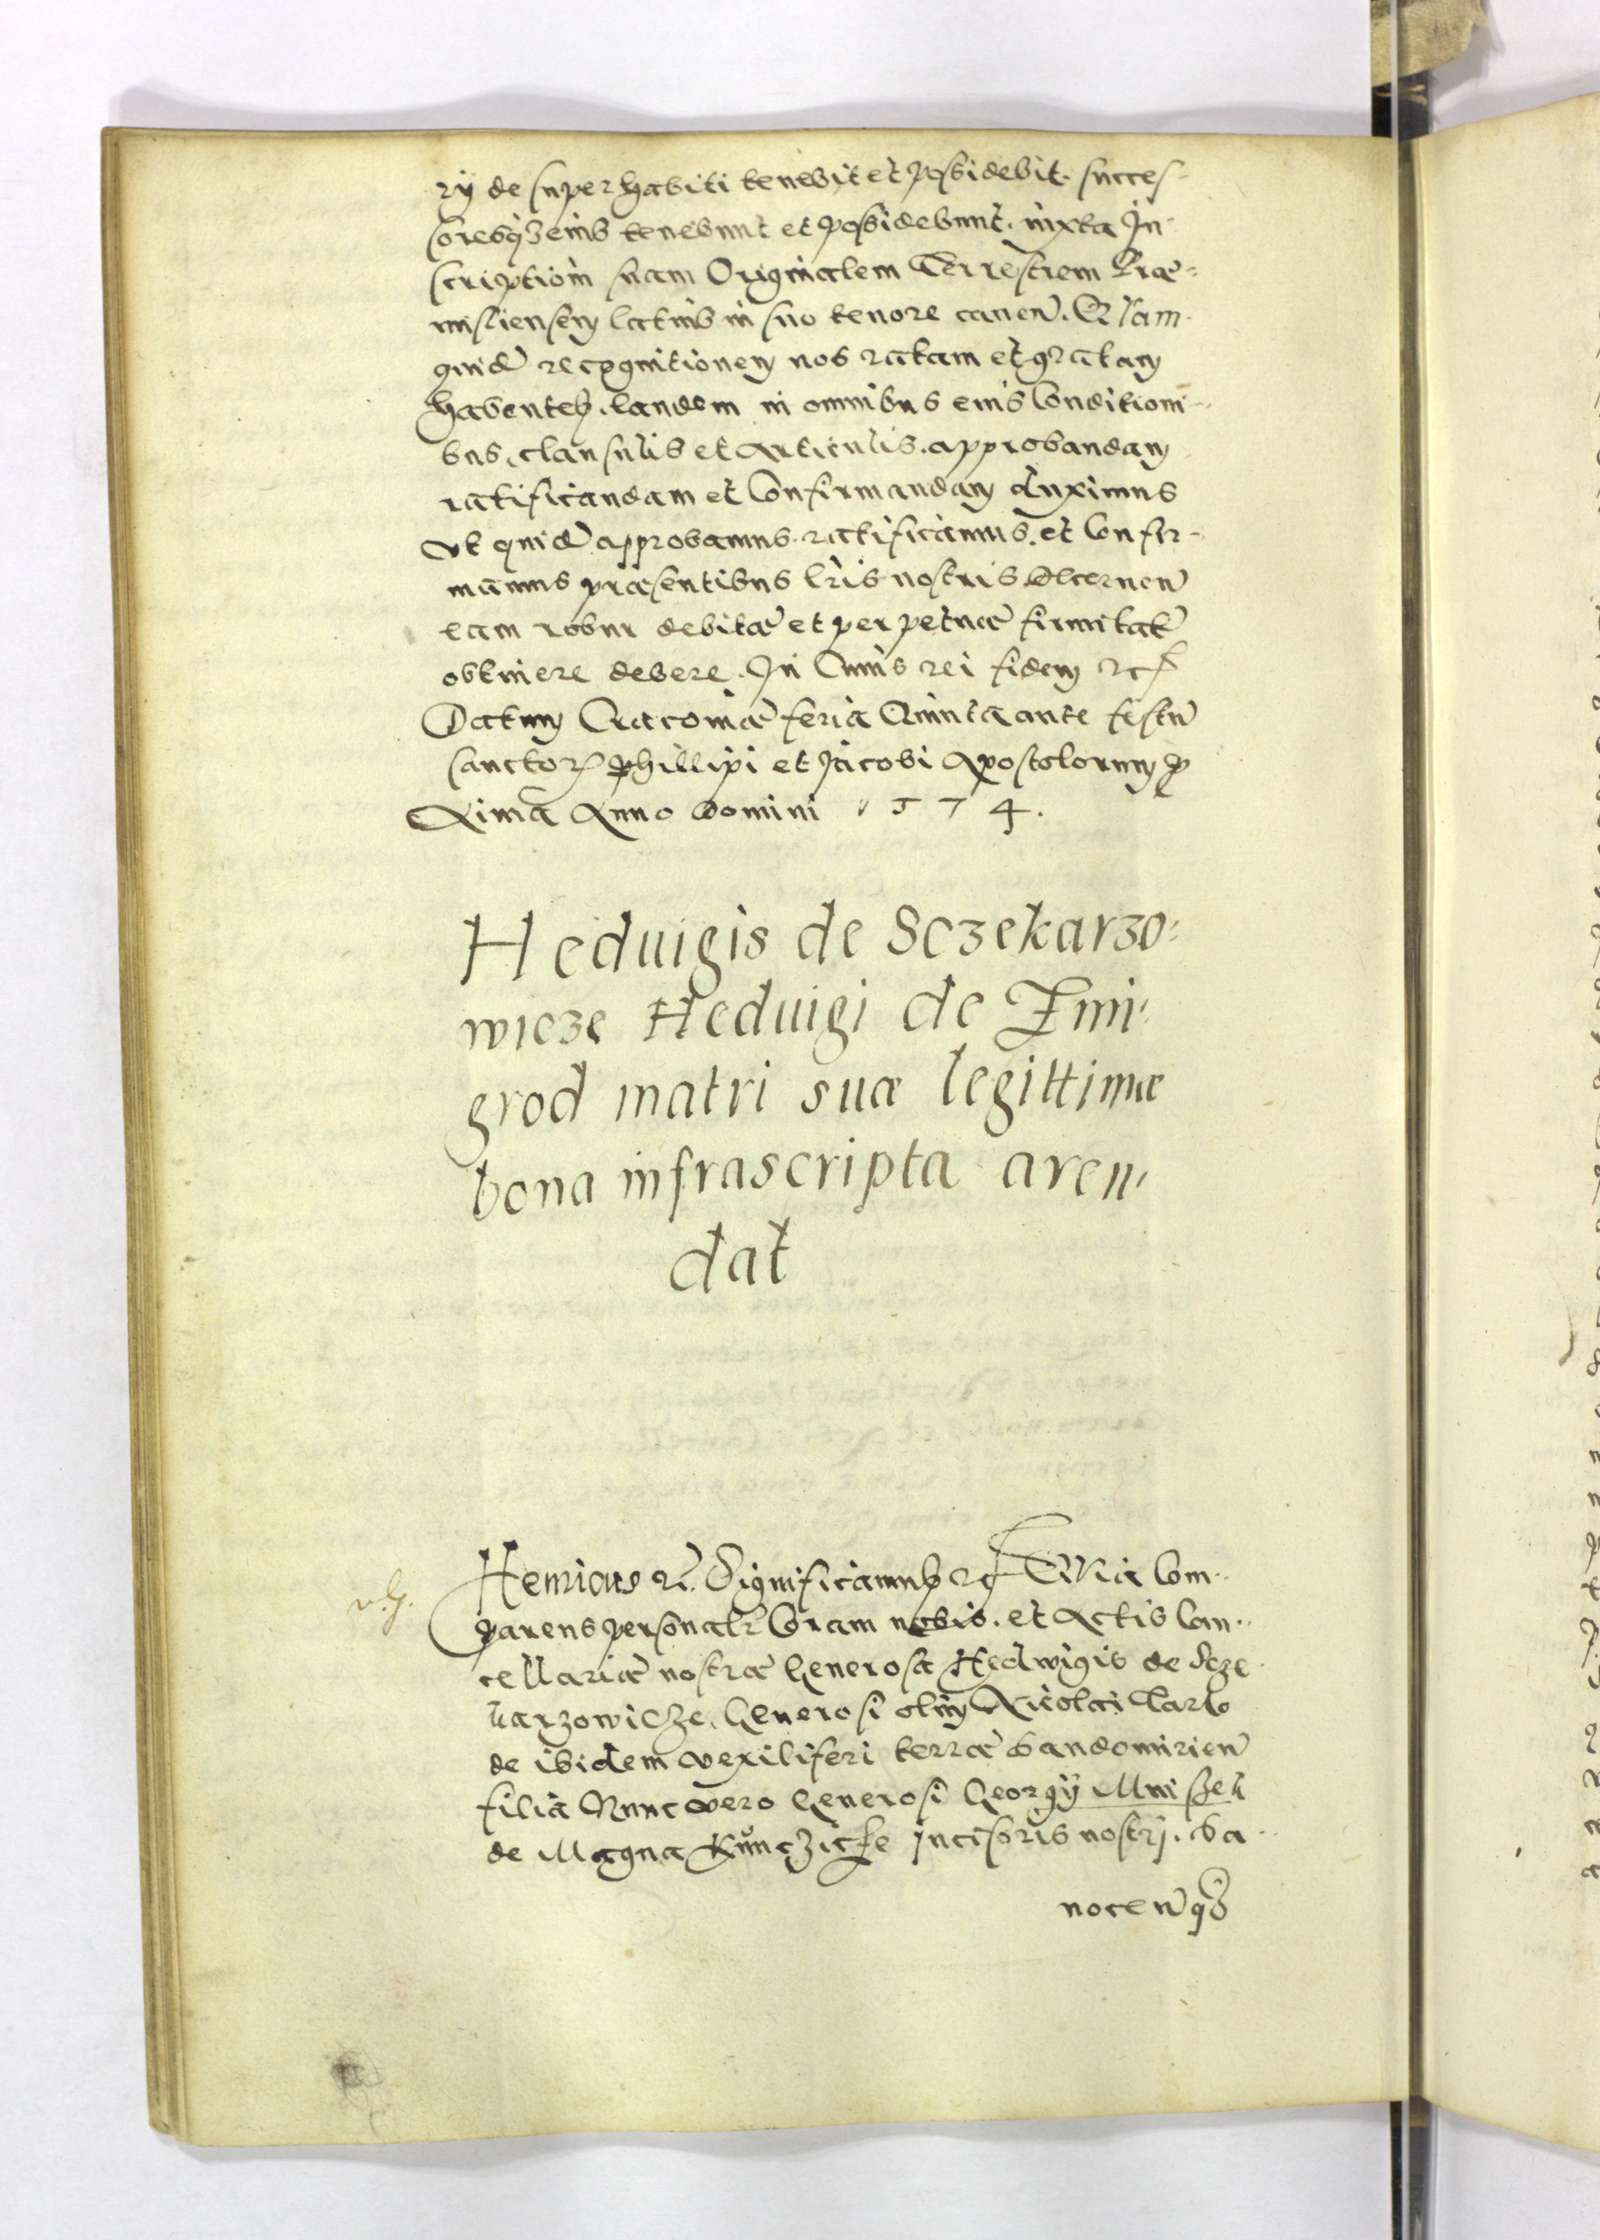 rÿ de super habiti tenebit et possidebit. succes-
soresq3 eius tenebunt et possidebunt. iuxta In-
scription suam Originalem Terrestrem Præ-
misliensem latius in suo tenore canen. Quam
quidē recognitionem nos ratam et gratam
habentes. eandem in omnibus eius Condition-
bus, clausulis et articulis. approbandam
ratificandam et Confirmandam duximus
vt quidē approbamus. ratificamus. et Confir-
mamus præsentibus lris nostris Decernen
eam robur debitæ et perpetuæ firmitatē
obtinere debere. In Cuius rei fidem etc
Datum Cracouiæ feria Quinta ante festū
sanctor Phillipi et Jacobi Apostolorum p
xima Anno Domini 1574.
Heduigis de Sczekarzo-
wicze Heduigi de Zmi-
grod matri suæ legittimæ
bona infrascripta aren-
dat
Henricus etc. Significamus etc Quia Com-
parens personalr Coram nobis. et Actis Can-
cellariæ nostræ Generosa Hedwigis de Scze
karzowicze. Generosi olim Nicolai Tarlo
de ibidem vexiliferi terræ Sandomirien
filia Nunc vero Generosi Georgÿ Mnisek
de Magna Kunczicze Incisoris nostrj. Sa-
nocen qd